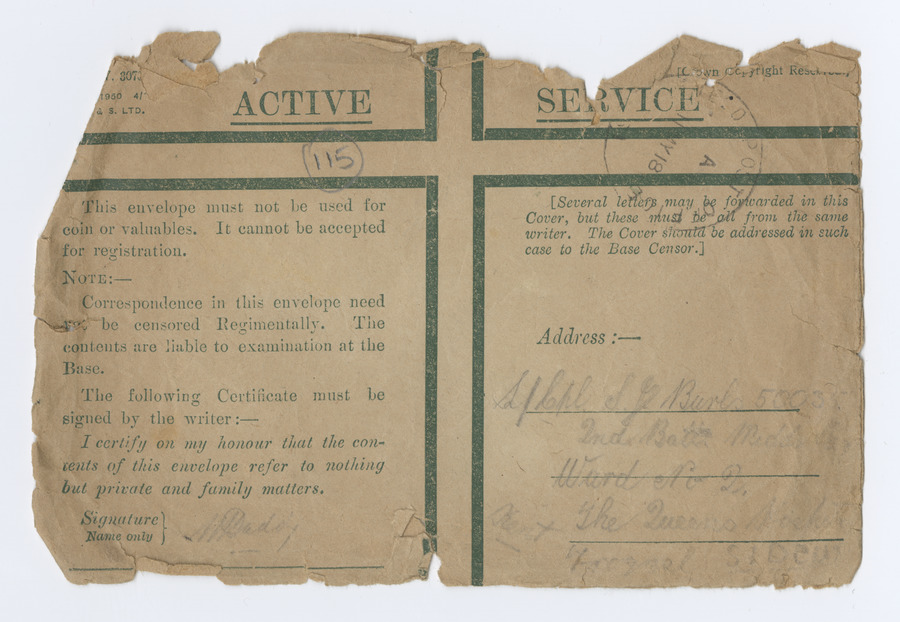 ACTIVE SERVICE
Copyright
& S. LTD.
115
MY 18
A
This envelope must not be used for
coin or valuables. It cannot be accepted
for registration.
NOTE:—
Correspondence in this envelope need
not be censored Regimentally. The
contents are liable to examination at the
Base.
The following Certificate must be
signed by the writer:—
I certify on my honour that the con-
tents of this envelope refer to nothing
but private and family matters.
Signature }
Name only
[Several letters may be forwarded in this
Cover, but these must be all from the same
writer. The Cover should be addressed in such
case to the Base Censor.]
Address :—
L/Cpl S G
2nd
Ward No 2.
The Queens